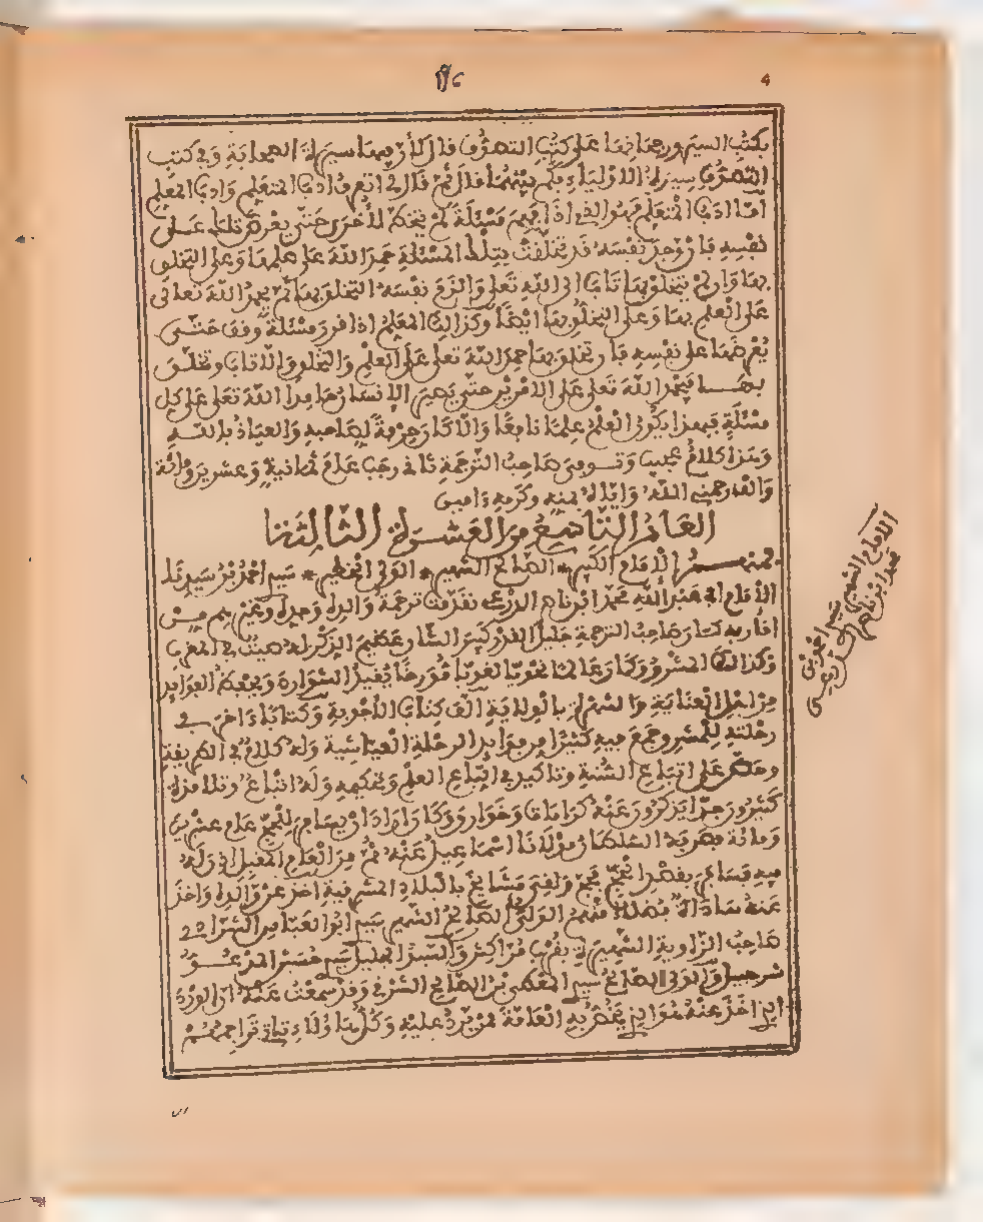 بكتب السير ورجحانها على كتب التصوف قال لأن فيها سيرة الصحابة وفي كتب
التصوف سيرة الأولياء وكم بينهما قال ثم قال لي اتعرف ادب المتعلم وادب المعلم
اما ادب المتعلم فهو الذي اذا فهم مسئلة لم يتخط للأخرى حتى يعرض تلك على
نفسه فان وجد نفسه قد تخلقت بتلك المسئلة حمد الله على علمها وعلى التخلق
بها وان لم يتخلق بها تاب الى الله تعلى والزم نفسه التخلق بها ثم يحمد الله تعالى
على العلم بها وعلى التخلق بها ايضا وكذالك المعلم اذا قرر مسئلة وقف حتى
يعرضها على نفسه فان تخلق بها حمد الله تعلى على العلم والتخلق والا تاب وتخلق
بها فيحمد الله تعلى على الامرين حتى يصير الإنسان حامدا الله تعلى على كل
مسئلة فبهذا يكون العلم علما نافعا والا كان حجة لصاحبه والعياذ بالله
وهذا كلام عجيب وتوفي صاحب الترجمة ثاني رجب عام ثمانية وعشرين ومائة
والف رحمه الله وايانا بمنه وكرمه ءامين
العام التاسع من العشرة الثالثة
فمنهم الإمام الكبير * الصالح الشهير * الولي الخطير * سيدي احمد بن سيدنا
الإمام ابي عبد الله محمد ابن ناصر الدرعي تقدمت ترجمة والده وجده وغيرهم من
اقاربه كان صاحب الترجمة جليل القدر كبير الشان عظيم الذكر له صيت في المغرب
وكذالك المشرق وكان عالما نحويا لغويا فقيها يقيد الشوارد ويحفظ الفوائد
من اهل العناية والشهرة بالولاية الف كتاب الأجوبة وكتابا ءاخر في
رحلته للمشرق جمع فيه كثيرا من فوائد الرحلة العياشية وله كلام في الطريقة
وحض على اتباع السنة وتاكيد في اتباع العلم وتحكيمه وله اتباع وتلامذة
كثيرون جدا يذكرون عنه كرامات وخوارق وكان اراد ان يسافر للحج عام عشرين
ومائة فصرفه السلطان مولانا اسماعيل عنه ثم من العام المقبل اذن له
فيه فسافر بقصد الحج فحج ولقي مشايخ بالبلاد المشرقية اخذ عن والده واخذ
عنه سادات فضلاء منهم الولي الصالح الشهير سيدي ابو العباس الشرادي
صاحب الزاوية الشهيرة بقرب مراكش والسيد الجليل سيدي حسين المدعو
شرحبيل والولي الصالح سيدي المعطى بن الصالح الشرقي وقد سمعت عنه ان الورد
الذي اخذ عنه هو الذي يذكر به العامة ممن يرد عليه وكل هاؤلاء تاتي تراجمهم
الإمام الشهير سيدي احمد بن
محمد ابن ناصر الدرعي